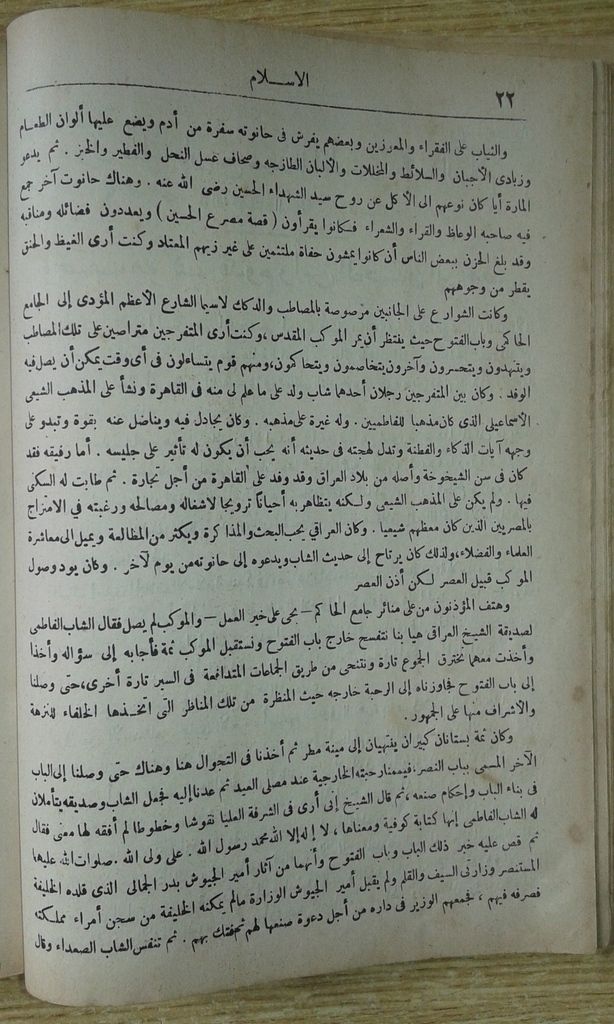 ٢٢
الاســـلام
والثياب على الفقراء والمعوزين وبعضهم يفرش فى حانوته سفرة من أدم ويضع عليها ألوان الطعـام
وزبادى الأجبان والسلائط والمخللات والألبان الطازجه وصحاف عسل النحل والفطير والخبز . ثم يدعو
المارة أيا كان نوعهم الى الأكل عن روح سيد الشهداء الحسين رضى الله عنه . وهناك حانوت آخر جمع
فيه صاحبه الوعاظ والقراء والشعراء فـكانوا يقرأون ( قصة مصرع الحسين ) ويعددون فضائله ومناقبه
وقد بلغ الحزن ببعض الناس أن كانوا يمشون حفاة ملتثمين على غير زيهم المعتاد وكنت أرى الغيظ والحنق
يقطر من وجوههم
وكانت الشوارع على الجانبين مرصوصة بالمصاطب والدكك لاسيما الشارع الأعظم المؤدى إلى الجامع
الحاكمى وباب الفتوح حيث ينتظر أن يمر الموكب المقدس ، وكنت أرى المتفرجين متراصين على تلك المصاطب
ويتنهدون ويتحسرون وآخرون يتخاصمون ويتحاكمون، ومنهم قوم يتساءلون فى أى وقت يمكن أن يصل فيه
الوفد . وكان بين المتفرجين رجلان أحدهما شاب ولد على ما علم لى منه فى القاهرة ونشأ على المذهب الشيعى
الأسماعيلى الذى كان مذهبا للفاطميين . وله غيرة على مذهبه . وكان يجادل فيه ويناضل عنه بقوة وتبدو على
وجهه آيات الذكاء والفطنة وتدل لهجته فى حديثه أنه يحب أن يكون له تأثير على جليسه . أما رفيقه فقد
كان فى سن الشيخوخة وأصله من بلاد العراق وقد وفد على القاهرة من أجل تجارة . ثم طابت له السكنى
فيها . ولم يكن على المذهب الشيعى ولـكنه يتظاهر به أحيانا ترويجا لاشغاله ومصالحه ورغبته في الامتزاج
بالمصريين الذين كان معظمهم شيعيا . وكان العراقي يحب البحث والمذاكرة ويكثر من المطالعة ويميل الى معاشرة
العلماء والفضلاء، ولذلك كان يرتاح إلى حديث الشاب ويدعوه إلى حانوته من يوم لآخر . وكان يود وصول
الموكب قبيل العصر لـكن أذن العصر
وهتف المؤذنون من على منائر جامع الحاكم — بحى على خير العمل — والموكب لم يصل فقال الشاب الفاطمى
لصديقة الشيخ العراقى هيا بنا نتفسح خارج باب الفتوح ونستقبل الموكب ثمة فأجابه إلى سؤاله وأخذا
وأخذت معهما نخترق الجموع تارة ونتنحى من طريق الجماعات المتدافعة فى السير تارة أخرى، حتى وصلنا
إلى باب الفتوح فجاوزناه إلى الرحبة خارجه حيث المنظرة من تلك المناظر التى اتخـذها الخلفاء للنزهة
والأشراف منها على الجمهور .
وكان ثمة بستانان كبيران ينتهيان إلى مينة مطر ثم أخذنا فى التجوال هنا وهناك حتى وصلنا إلى الباب
الآخر المسمى بباب النصر، فيممنا رحبته الخارجية عند مصلى العيد ثم عدنا إليه فجعل الشاب وصديقه يتأملان
فى بناء الباب وإحكام صنعه ، ثم قال الشيخ إنى أرى فى الشرفة العليا نقوشا وخطوطا لم أفقه لها معنى فقال
له الشاب الفاطمى إنها كتابة كوفية ومعناها ، لا إله إلا الله محمد رسول الله . على ولى الله . صلوات الله عليها
ثم قص عليه خبر ذلك الباب وباب الفتوح وأنهما من آثار أمير الجيوش بدر الجمالى الذى قلده الخليفة
المستنصر وزارتى السيف والقلم ولم يقبل أمير الجيوش الوزارة مالم يمكنه الخليفة من سجن أمراء مملـكته
فصرفه فيهم ، فجمعهم الوزير فى داره من أجل دعوة صنعها لهم ثم فتك بهم . ثم تنفس الشاب الصعداء وقال